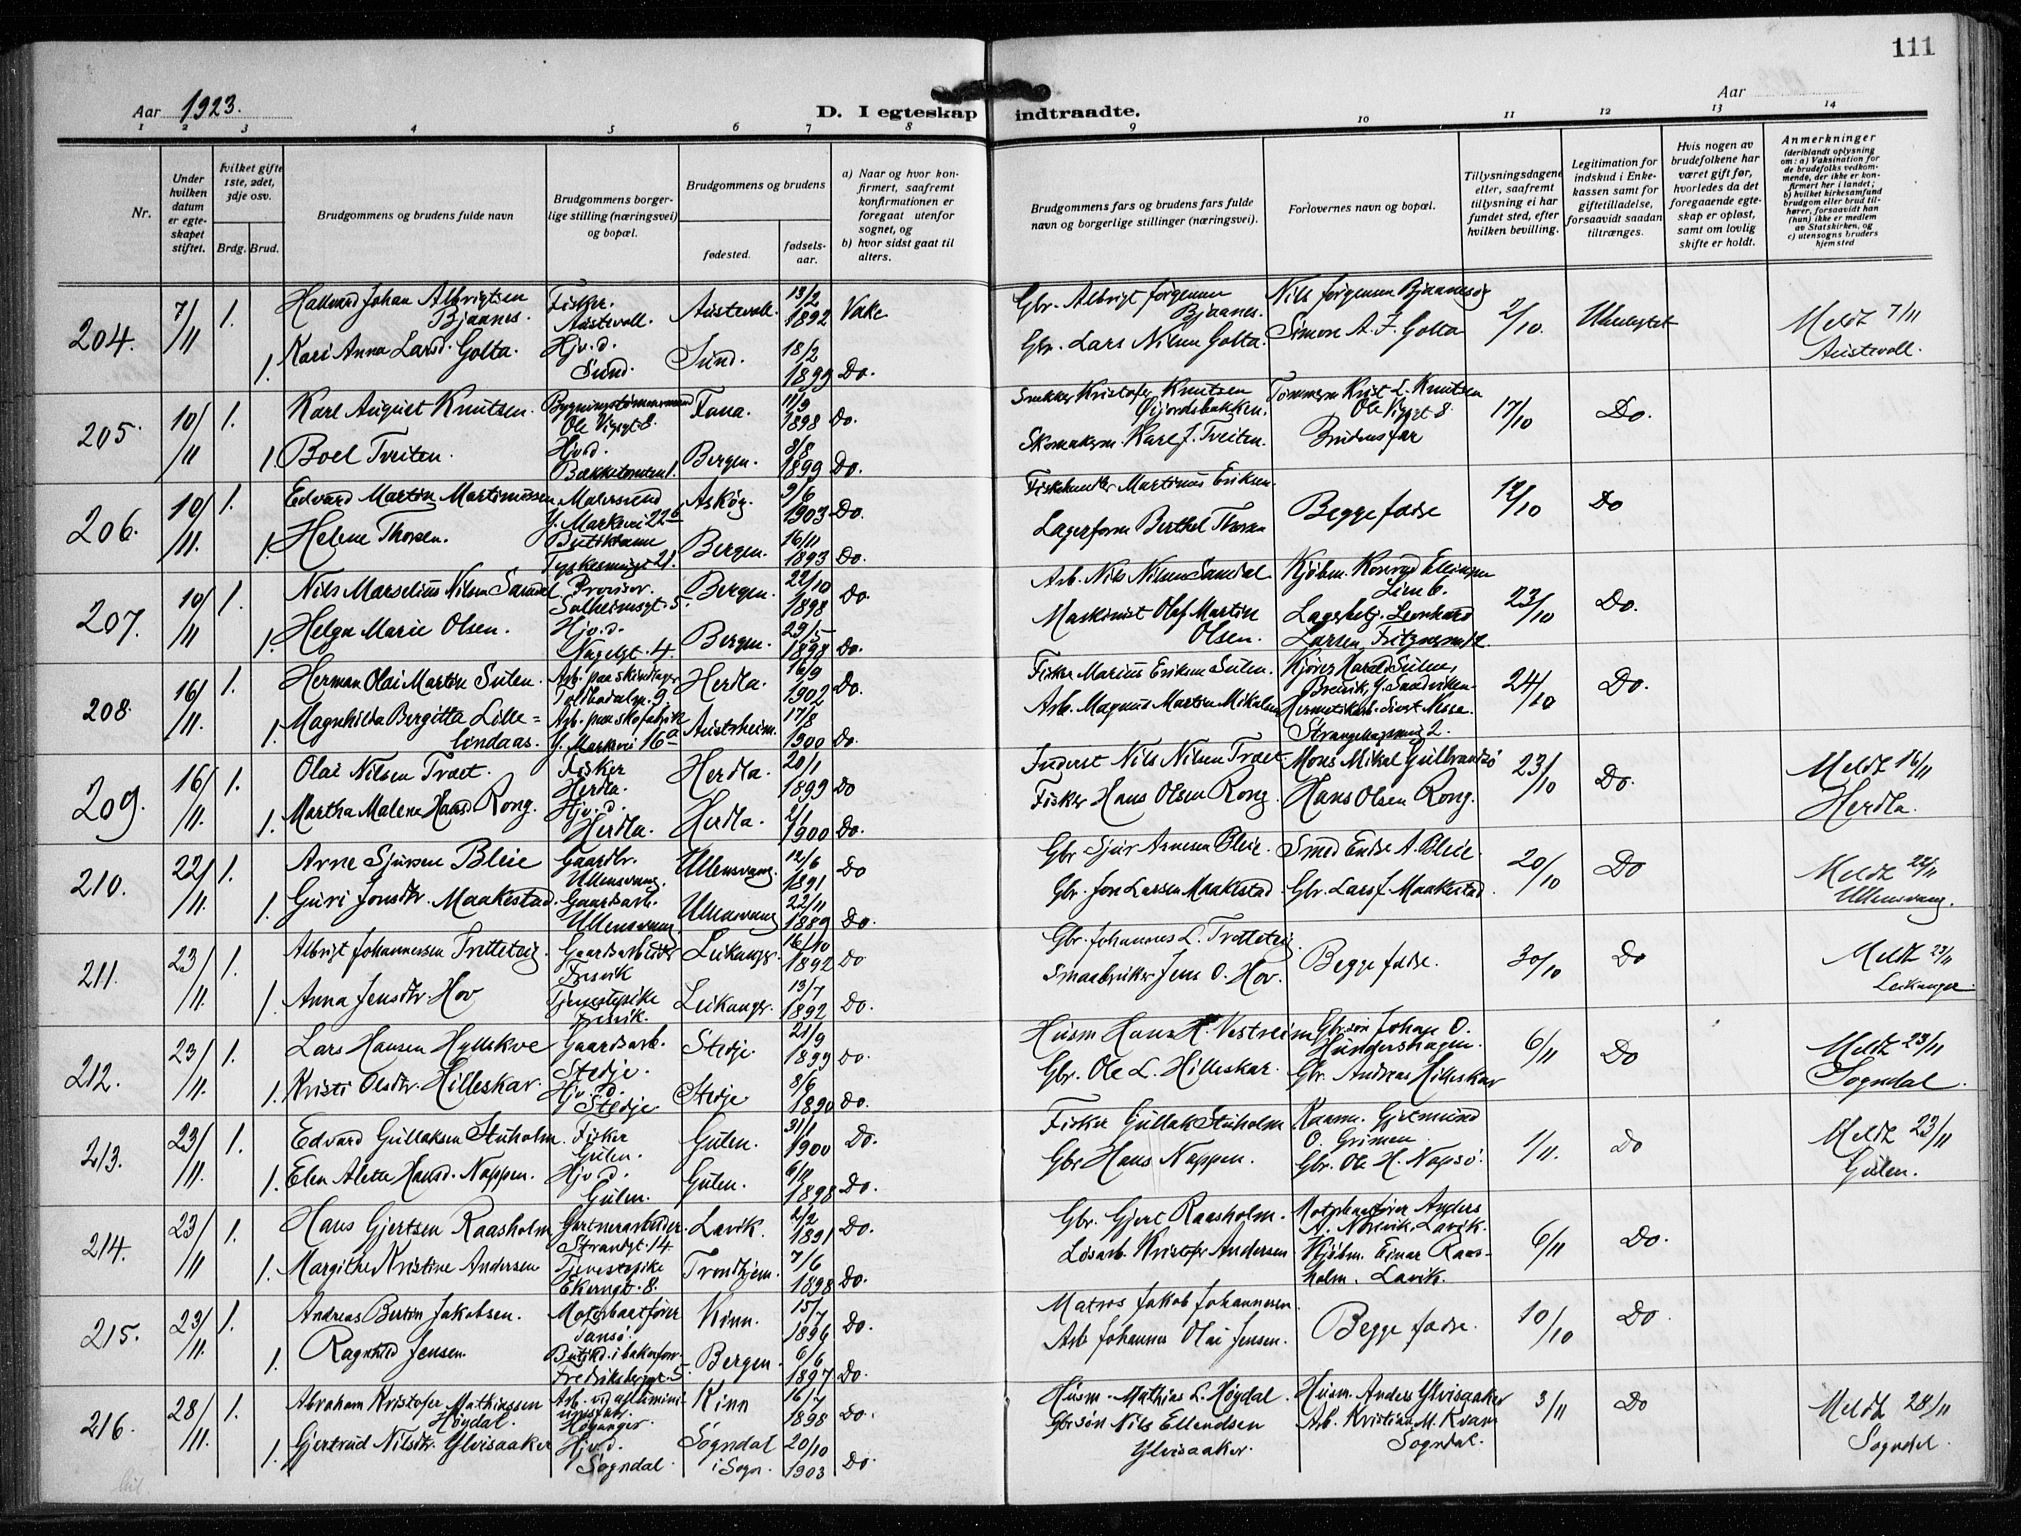 111
Aar 1923.
D. I egteskap indtraadte.
Aar
1 2 3 4 5 6 7 8 9 10 11 12 13 14
Nr.
Under hvilken datum er egteskapet stiftet.
Hvilket gifte 1ste, 2det, 3dje osv.
Brdg. Brud.
Brudgommens og brudens fulde navn
Brudgommens borgerlige stilling (næringsvei) og bopæl.
Brudgommens og brudens
fødested. fødselsaar.
a) Naar og hvor konfirmert, saafremt konfirmationen er foregaat utenfor sognet, og
b) hvor sidst gaat til alters.
Brudgommens fars og brudens fars fulde navn og borgerlige stillinger (næringsvei).
Forlovernes navn og bopæl.
Tillysningsdagene eller, saafremt tillysning ei har fundet sted, efter hvilken bevilling.
Legitimation for indskud i Enkekassen samt for giftetilladelse, forsaavidt saadan tiltrænges.
Hvis nogen av brudefolkene har været gift før, hvorledes da det foregaaende egteskap er opløst, samt om lovlig skifte er holdt.
Anmerkninger
(deriblandt oplysning om: a) Vaksination for de brudefolks vedkommende, der ikke er konfirmert her i landet; b) hvilket kirkesamfund brudgom eller brud tilhører, forsaavidt han (hun) ikke er medlem av Statskirken, og c) utensogns bruders hjemsted
204. 7/11 1. Hallvard Johan Albrigtsen Bjaanes. Fisker. Austevoll. Austevoll. 13/2 1892 Vake Gbr. Albrigt Jørgensen Bjaanes. Nils Jørgensen Bjaanesøy 2/10. Meldt 7/11 Austevoll.
1. Kari Anna Larsd. Golta. Hjv.d. Sund. Sund. 18/2 1899 Do. Gbr. Lars Nilsen Golta. Simon A. J. Golta
205. 10/11 1. Karl August Knutsen. Bygningstømmermand Ole Vigsgt 8. Fana. 11/9 1898 Do. Snekker Kristofer Knutsen Tømmerm Krist. L. Knutsen Ole Vigsgt 8. 17/10 Do.
1. Boel Tveiten. Hjv.d. Bergen. 8/8 1899 Do. Skomakerm. Karl J. Tveiten. Brudens far
206. 10/11. 1. Edvard Martin Martinussen Malersvend Y. Markevei 22 b Askøy. 9/6 1903 Do. Fiskehandler Martinus Eriksen. Begge fædre 12/10 Do
1. Helene Thorsen. Bergen. 16/11 1893 Do. Lagerform Berthel Thorsen
207. 10/11 1. Nils Marselius Nilsen Samdal Provisor. Solheimsgt. 5. Bergen. 22/10 1898 Do. Arb. Nils Nilsen Samdal. Kjøbm. Konrad Ellingsen Lien 6. 23/10 Do.
1. Helga Marie Olsen. Hjv.d. Nygelgt. 4. Bergen. 29/5 1898 Do. Maskinist Olaf Martin Olsen. Lagerbetj. Leonhard Larsen,
208. 16/11. 1. Herman Olai Martin Sulen. Toldbodalm. 9 Herdla. 16/9 1902 Do. Fisker Marius Eriksen Sulen. Kjører Harald Sulen, Breivik, Y. Sandviken 24/10 Do.
1. Magnhilda Bergitta Lille=lindaas. Arb. paa skofabrik Y. Markevei 16 a Austrheim. 17/8 1900 Do. Arb. Magnus Martin Mikalsen Hermetikarb. Sivert Nesse. Strangehagen 2.
209. 16/11. 1. Olai Nilsen Træet. Fisker Herdla. Herdla. 20/1 1899 Do Inderst Nils Nilsen Træet. Mons Mikal Gulbrandsø 23/10 Do. Meldt 16/11 Herdla.
1. Martha Malena Hansd Rong. Hjv.d. Herdla. Herdla. 2/1 1900 Do. Fisker Hans Olsen Rong. Hans Olsen Rong.
210. 22/11. 1. Arne Sjursen Bleie Gaardbr. Ullensvang. Ullensvang. 12/6 1891 Do Gbr Sjur Arnesen Bleie. Smed Endre A. Bleie. 20/10 Do Meldt 22/11 Ullensvang.
1. Guri Jonsdtr. Maakestad. Gaardsarb. Ullensvang. Ullensvang 22/11 1889 Do. Gbr. Jon Larsen Maakestad. Gbr. Lars J. Maakestad.
211. 23/11. 1. Albrigt Johannessen Tretteteig. Gaardsarbeider Fresvik Leikanger. 16/10 1892 Do Gbr. Johannes L. Tretteteig. Begge fædre. 30/10 Do Meldt 23/11 Leikanger.
1. Anna Jensdtr. Hov Tjenestepike Fresvik. Leikanger. 13/7 1892 Do. Smaabruker Jens O. Hov.
212. 23/11. 1. Lars Hansen Hyllskve Gaardsarb. Stedje. Stedje. 21/9 1899 Do. Husm Hans H. Vestreim Gbr.søn Johan O. Hundershagen. 6/11 Do Meldt 23/11 Sogndal.
1. Kristi Olsdtr. Hilleskar. Hjv.d. Stedje Stedje 8/6 1890 Do. Gbr. Ole L. Hilleskar. Gbr. Andreas Hilleskar
213. 23/11. 1. Edvard Gullaksen Stuholm. Fisker Gulen. Gulen. 31/1 1900 Do. Fisker Gullak Stuholm Gjermund O. Grimen 1/11. Do Meldt 23/11 Gulen.
1. Elen Alette Hansd. Nappen. Hjv.d. Gulen. Gulen. 1898 Do. Gbr Hans Nappen. Gbr. Ole H. Napsø.
214. 23/11 1. Hans Gjertsen Raasholm Gartnerarbeider. Strandgt. 14 Lavik. 2/2 1891 Do. Gbr. Gjert Raasholm. Motorbaatfører Anders A. Norevik, Lavik. 6/11 Do.
1. Margithe Kristine Andersen Tjenestepike Ekerngt. 8. Trondhjem. 7/6 1898 Do. Løsarb. Kristofer Andersen Kjøbm. Einar Raasholm. Lavik.
215. 23/11. 1. Andreas Bertin Jakobsen. Motorbaatfører Kinn. 15/7 1896 Do. Matros Jakob Johannesen. Begge fædre. 10/10 Do
1. Ragnhild Jensen. Butikd. i bakerforr. Fredriksbergt 5. Bergen. 6/6 1897 Do. Arb Johannes Olai Jensen.
216. 28/11. 1. Abraham Kristofer Mathiassen Høydal. Arb. v. aluminiumsfabr. Høyanger. Kinn 16/7 1898 Do. Husm. Mathias L. Høydal. Husm. Anders Ylvisaaker 3/11 Do Meldt 28/11 Sogndal.
1. Gjertrud Nilsdtr. Ylvisaaker Hjv.d. Sogndal. Sogndal i Sogn. 20/10 1903 Do. Gbrsøn Nils Ellendsen Ylvisaaker. Arb. Kristian M. Kvam Sogndal.